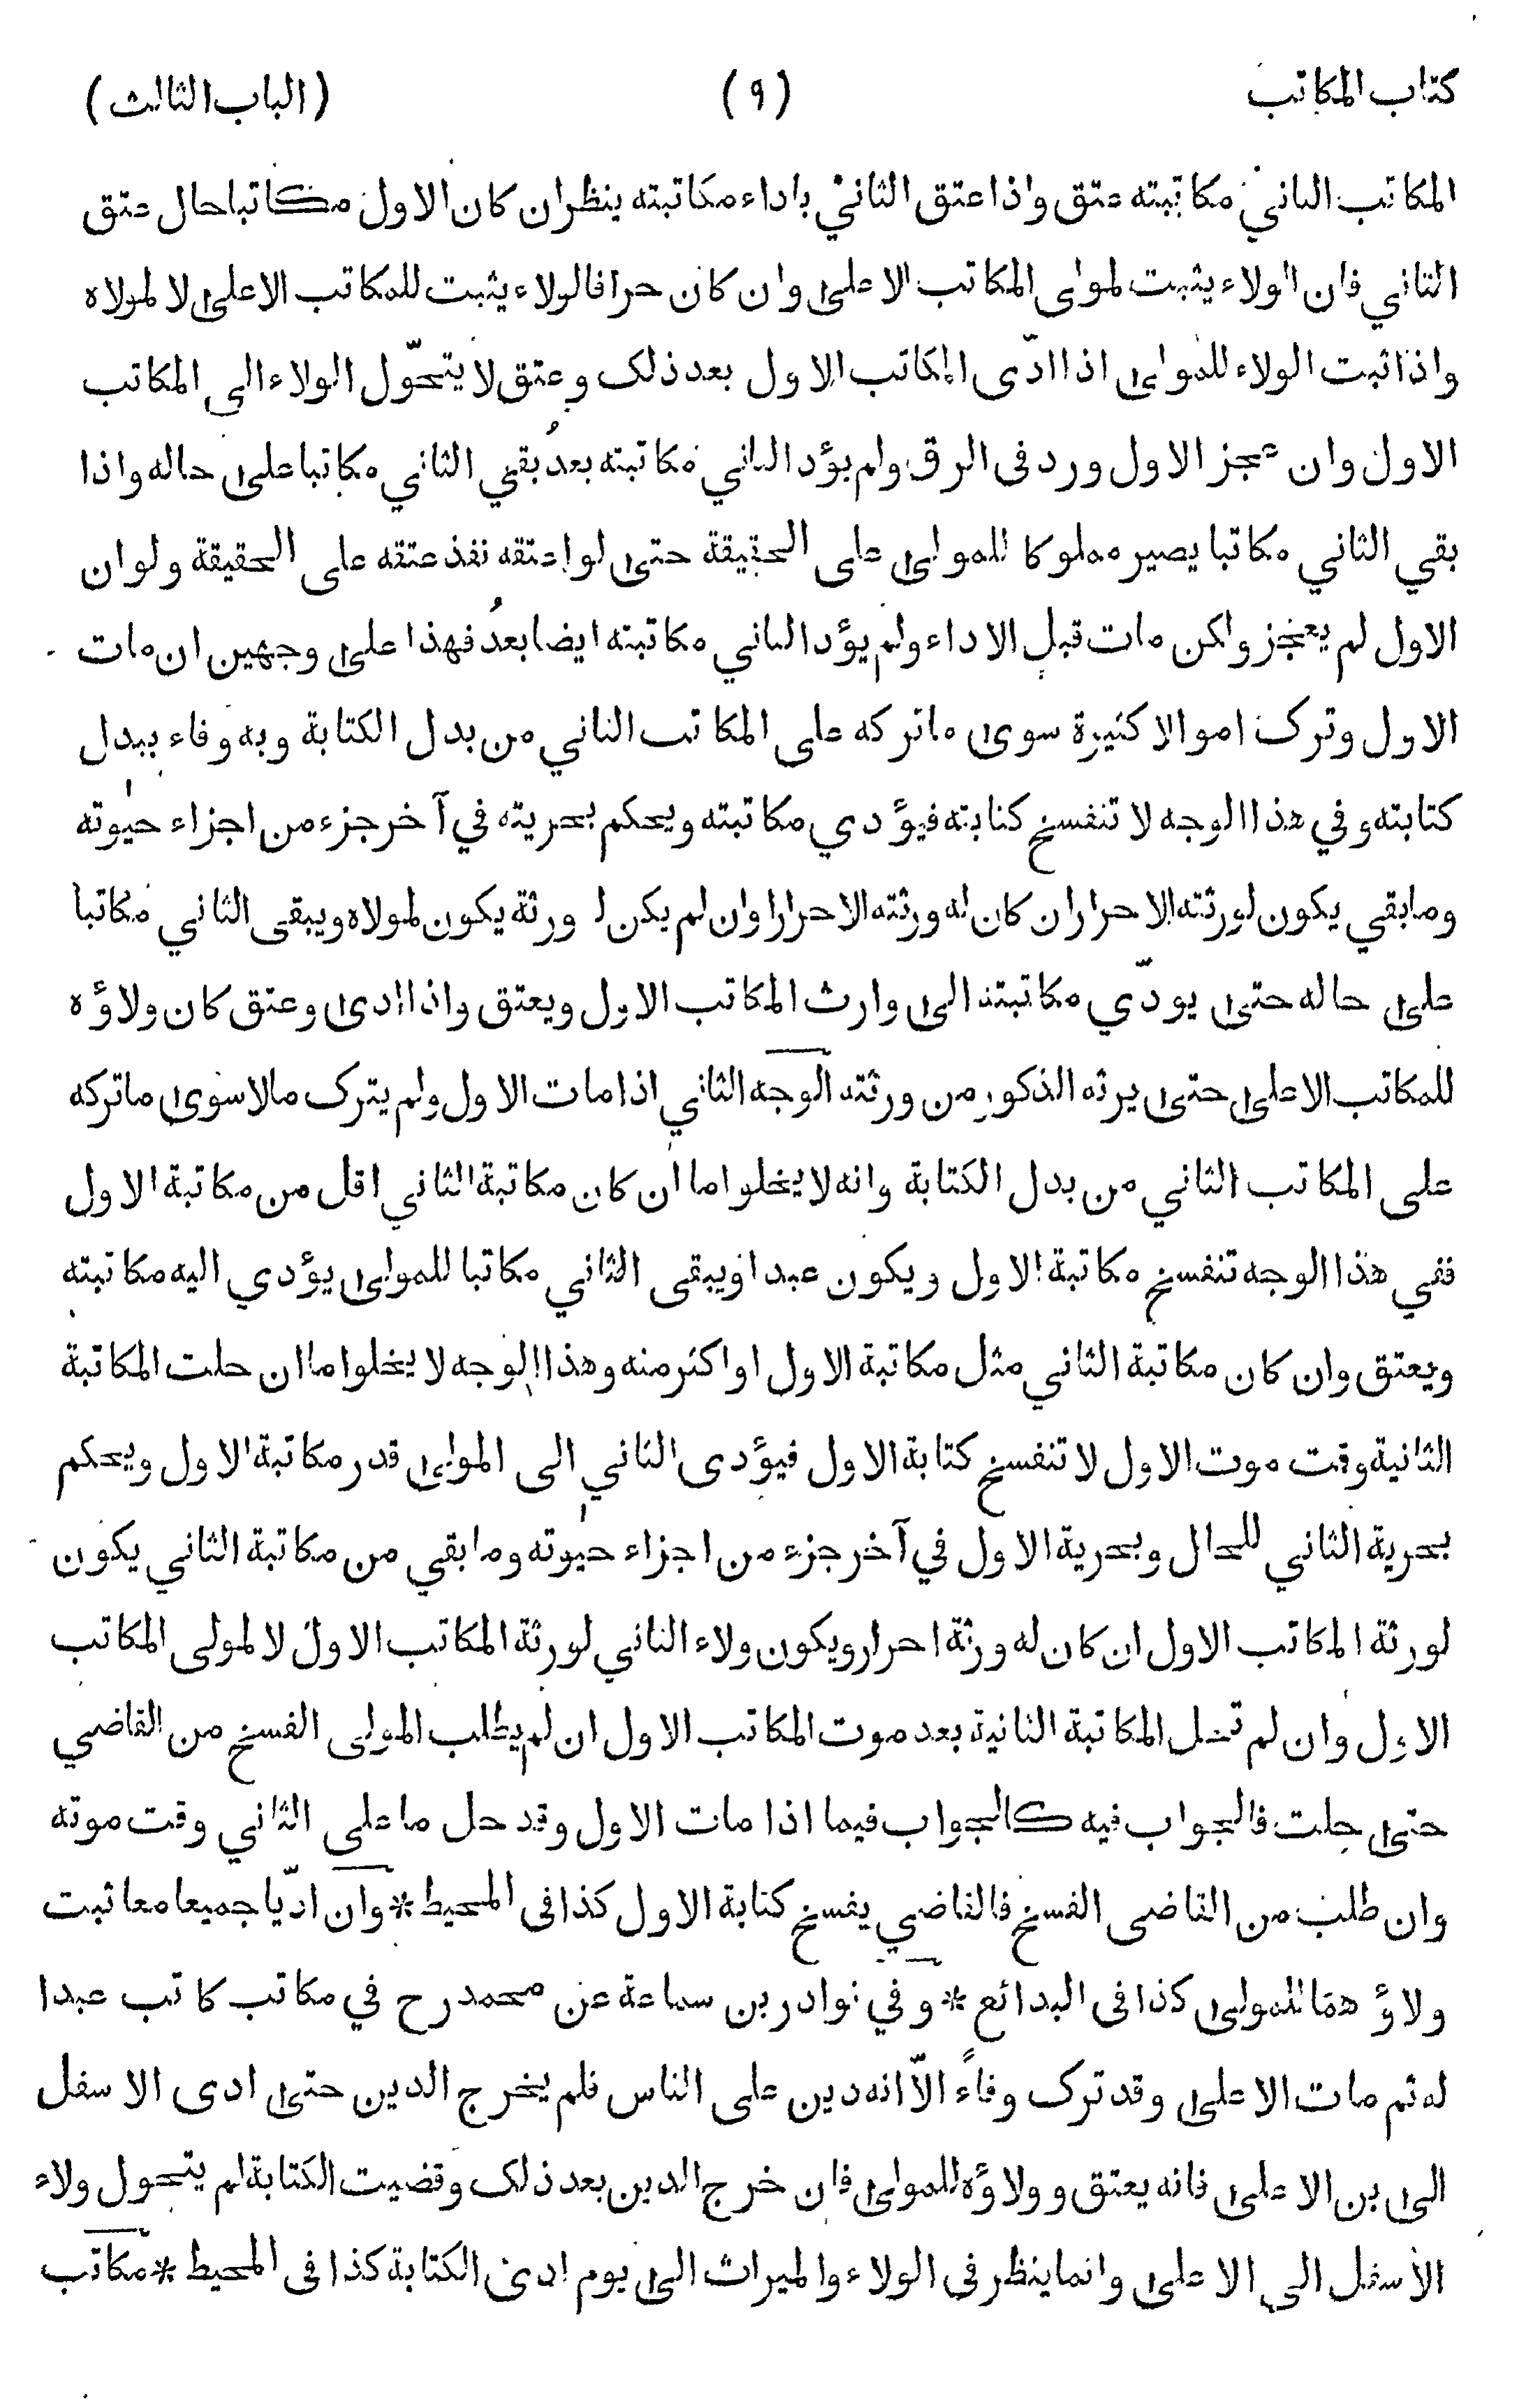 كتاب المكاتب (٩) (الباب الثالث)
المكاتب الثاني مكاتبته عتق واذا عتق الثاني باداء مكاتبته ينظر ان كان الاول مكاتبا حال عتق
الثاني فان الولاء يثبت لمولى المكاتب الاعلى وان كان حرا فالولاء يثبت للمكاتب الاعلى لا لمولاه
واذا ثبت الولاء للمولى اذا ادّى المكاتب الاول بعد ذلك وعتق لا يتحوّل الولاء الى المكاتب
الاول وان عجز الاول ورد فى الرق ولم يؤد الثاني مكاتبته بعدُ بقي الثاني مكاتبا على حاله واذا
بقي الثاني مكاتبا يصير مملوكا للمولى على الحقيقة حتى لو اعتقه نفذ عتقه على الحقيقة ولو ان
الاول لم يعجز ولكن مات قبل الاداء ولم يؤد الثاني مكاتبته ايضا بعدُ فهذا على وجهين ان مات
الاول وترك اموالا كثيرة سوى ما تركه على المكاتب الثاني من بدل الكتابة وبه وفاء ببدل
كتابته وفي هذا الوجه لا تنفسخ كتابته فيؤدي مكاتبته ويحكم بحريته في آخر جزء من اجزاء حيٰوته
وما بقي يكون لورثته الاحرار ان كان له ورثته الاحرار وان لم يكن ل ورثة يكون لمولاه ويبقى الثاني مكاتبا
على حاله حتى يودّي مكاتبته الى وارث المكاتب الاول ويعتق واذا ادى وعتق كان ولاؤه
للمكاتب الاعلى حتى يرثه الذكور من ورثته الوجه الثاني اذا مات الاول ولم يترك مالا سوى ما تركه
على المكاتب الثاني من بدل الكتابة وانه لا يخلوا ما ان كان مكاتبة الثاني اقل من مكاتبة الاول
ففي هذا الوجه تنفسخ مكاتبة الاول ويكون عبدا ويبقى الثاني مكاتبا للمولى يؤدي اليه مكاتبته
ويعتق وان كان مكاتبة الثاني مثل مكاتبة الاول او اكثر منه وهذا الوجه لا يخلوا ما ان حلت المكاتبة
الثانية وقت موت الاول لا تنفسخ كتابة الاول فيؤدى الثاني الى المولى قدر مكاتبة الاول ويحكم
بحرية الثاني للحال وبحرية الاول في آخر جزء من اجزاء حيٰوته وما بقي من مكاتبة الثاني يكون
لورثة المكاتب الاول ان كان له ورثة احرار ويكون ولاء الثاني لورثة المكاتب الاول لا لمولى المكاتب
الاول وان لم تحل المكاتبة الثانية بعد موت المكاتب الاول ان لم يطلب المولى الفسخ من القاضي
حتى حلت فالجواب فيه كالجواب فيما اذا مات الاول وقد حل ما على الثاني وقت موته
وان طلب من القاضى الفسخ فالقاضي يفسخ كتابة الاول كذا فى المحيط * وان ادّيا جميعا معا ثبت
ولاؤ هما للمولى كذا فى البدائع * وفي نوادر بن سماعة عن محمد رح في مكاتب كاتب عبدا
له ثم مات الاعلى وقد ترك وفاءً الاّ انه دين على الناس فلم يخرج الدين حتى ادى الاسفل
الى بن الاعلى فانه يعتق وولاؤه للمولى فان خرج الدين بعد ذلك وقضيت الكتابة لم يتحول ولاء
الاسفل الى الاعلى وانما ينظر فى الولاء والميراث الى يوم ادى الكتابة كذا فى المحيط * مكاتب